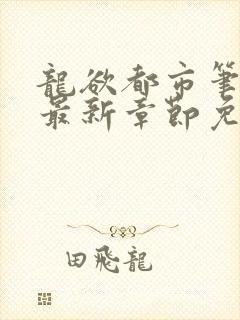 龍欲都市筆
最新章節免
田飛龍